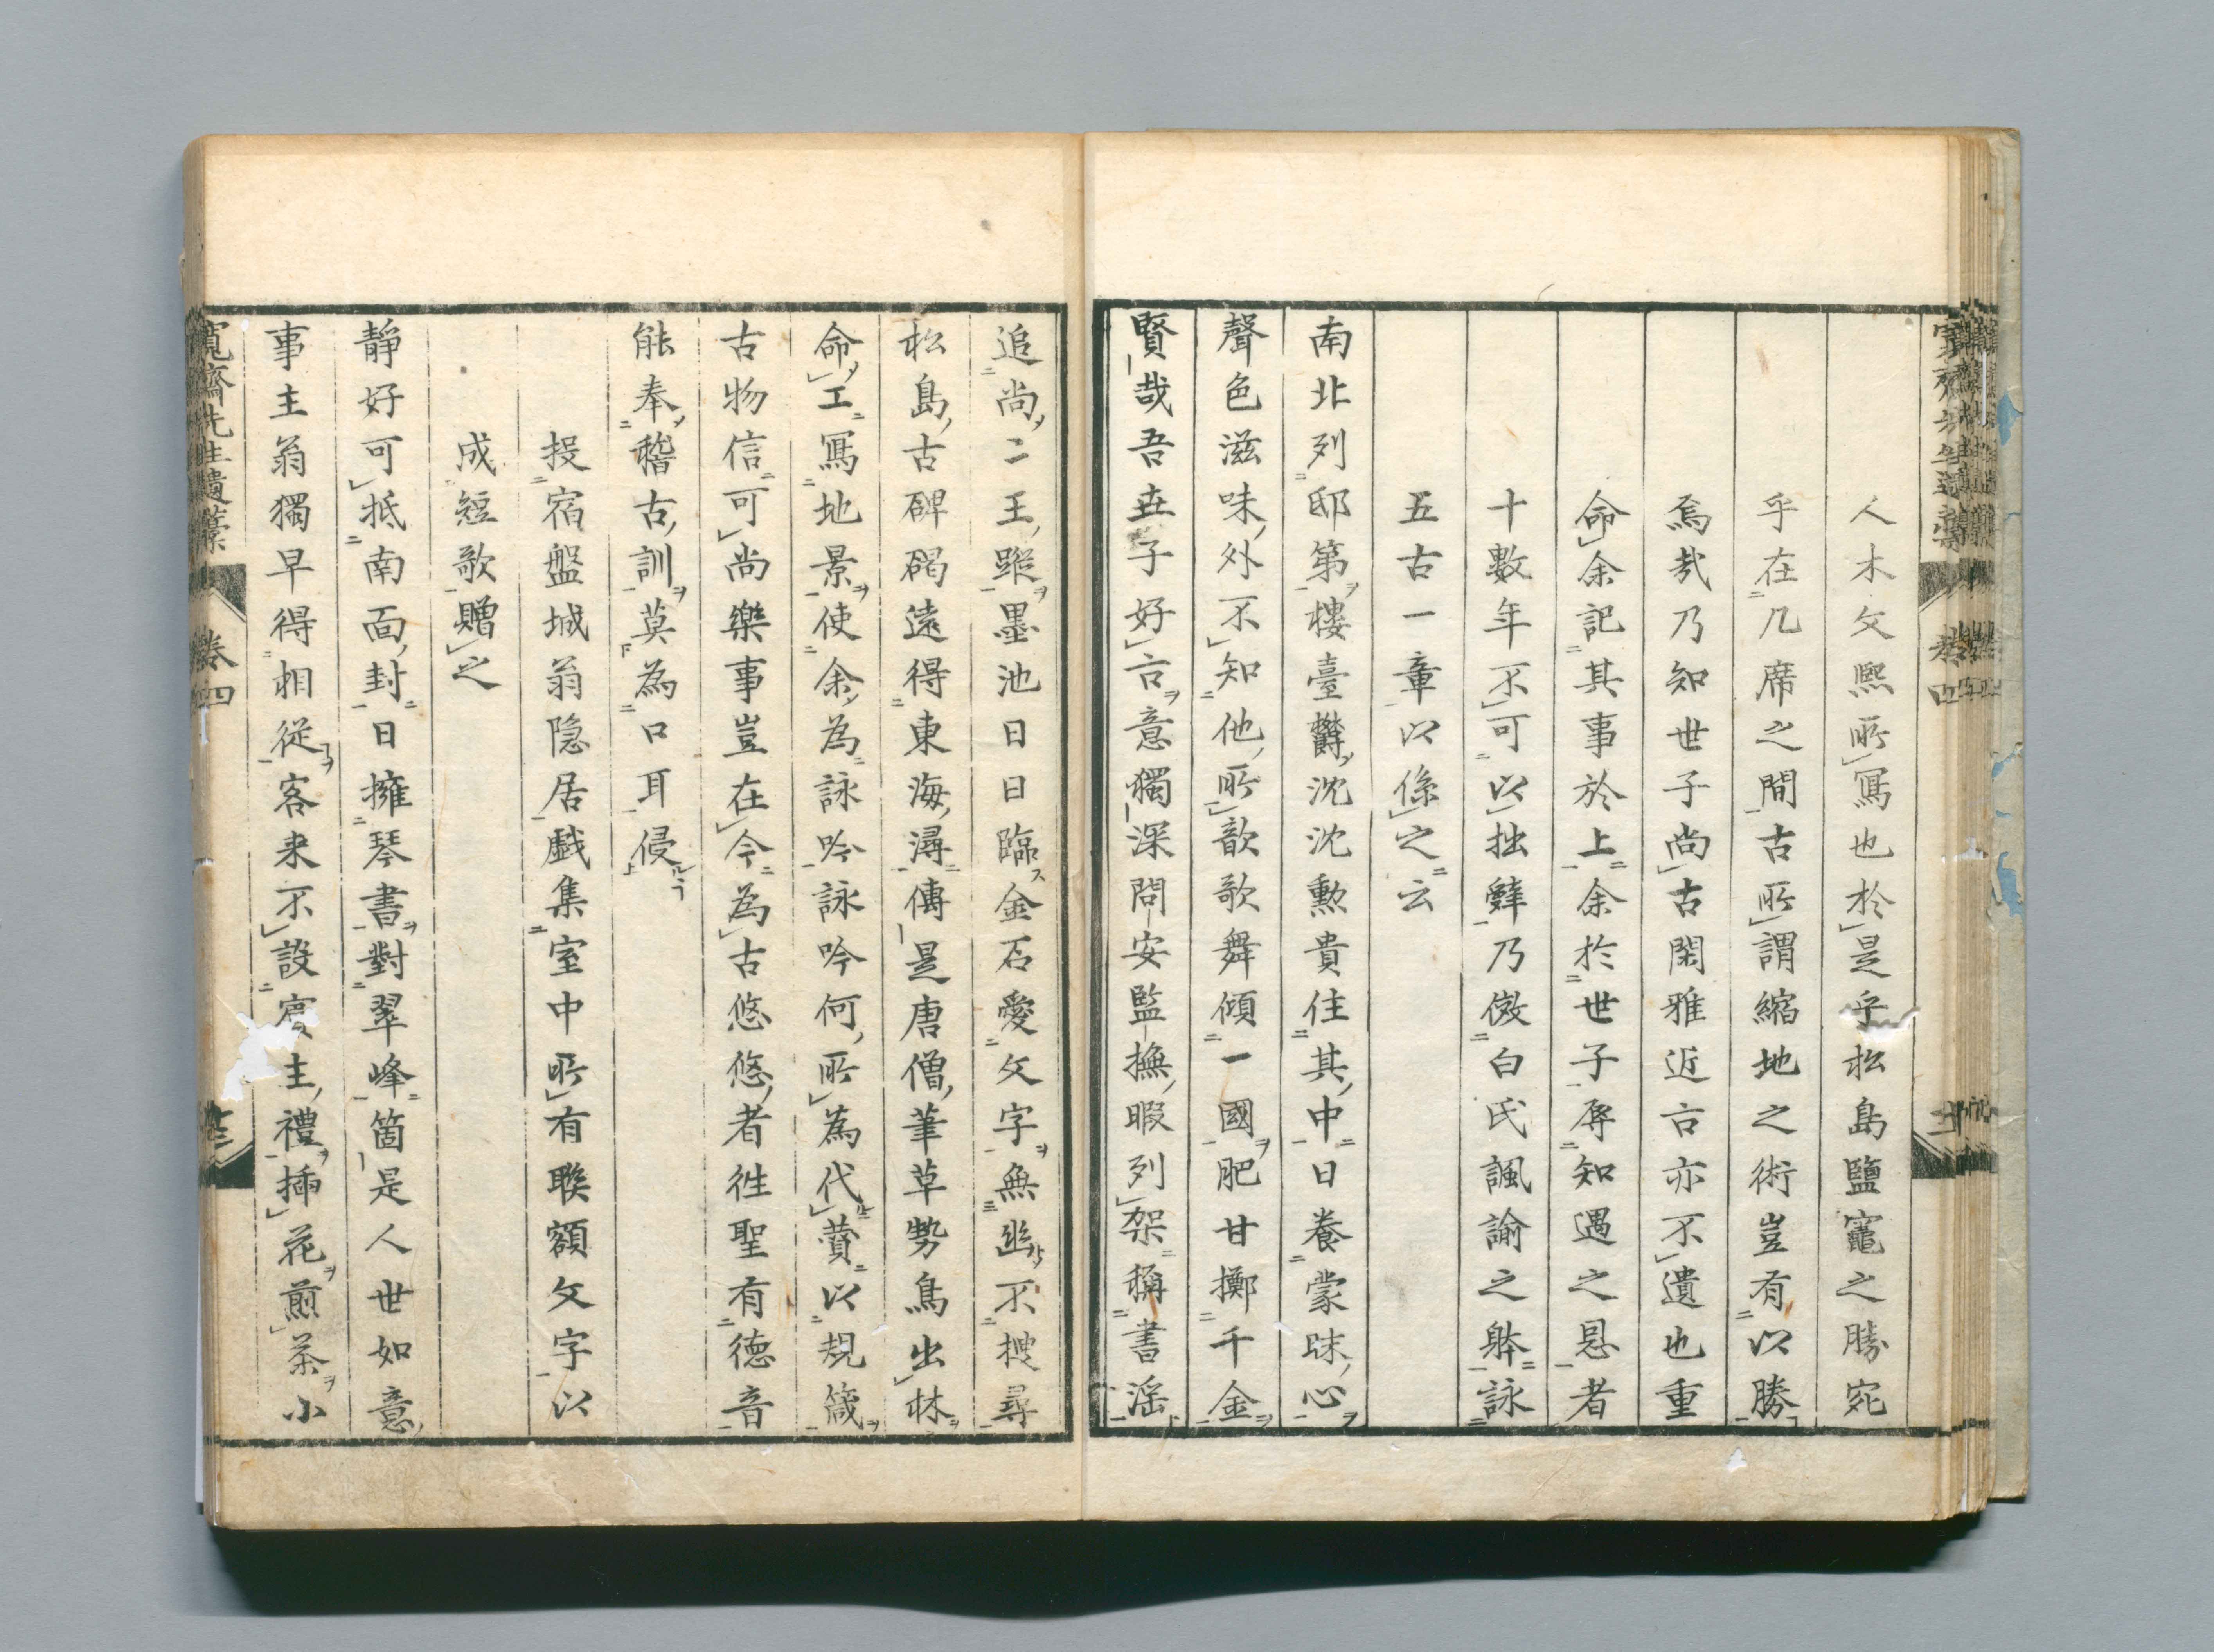 人木文熙所寫也於是乎松島鹽竈之勝宛
乎在几席之間古所謂縮地之術豈有以勝
焉哉乃知世子尚古閑雅近言亦不遺也重
命余記其事於上余於世子辱知遇之恩者
十數年不可以拙辭乃傚白氏諷諭之躰詠
五古一章以係之云
南北列邸第樓臺欝沈沈勲貴住其中日養蒙昧心
聲色滋味外不知他所歆歌舞傾一國肥甘擲千金
賢哉吾世子好言意獨深問安監撫暇列架稱書淫
追尚二王蹤墨池日日臨金石愛文字無幽不搜尋
松島古碑碣遠得東海潯傳是唐僧筆草勢鳥出林
命工寫地景使余為詠吟詠吟何所為代賷以規箴
古物信可尚樂事豈在今為古悠悠者徃聖有德音
能奉稽古訓莫為口耳侵
投宿盤城翁隐居戯集室中所有聯額文字以
成短歌贈之
靜好可抵南面封日擁琴書對翠峰箇是人世如意
事主翁獨早得相従客来不設賓主禮插花煎茶小
寛齋先生遺稾 卷四